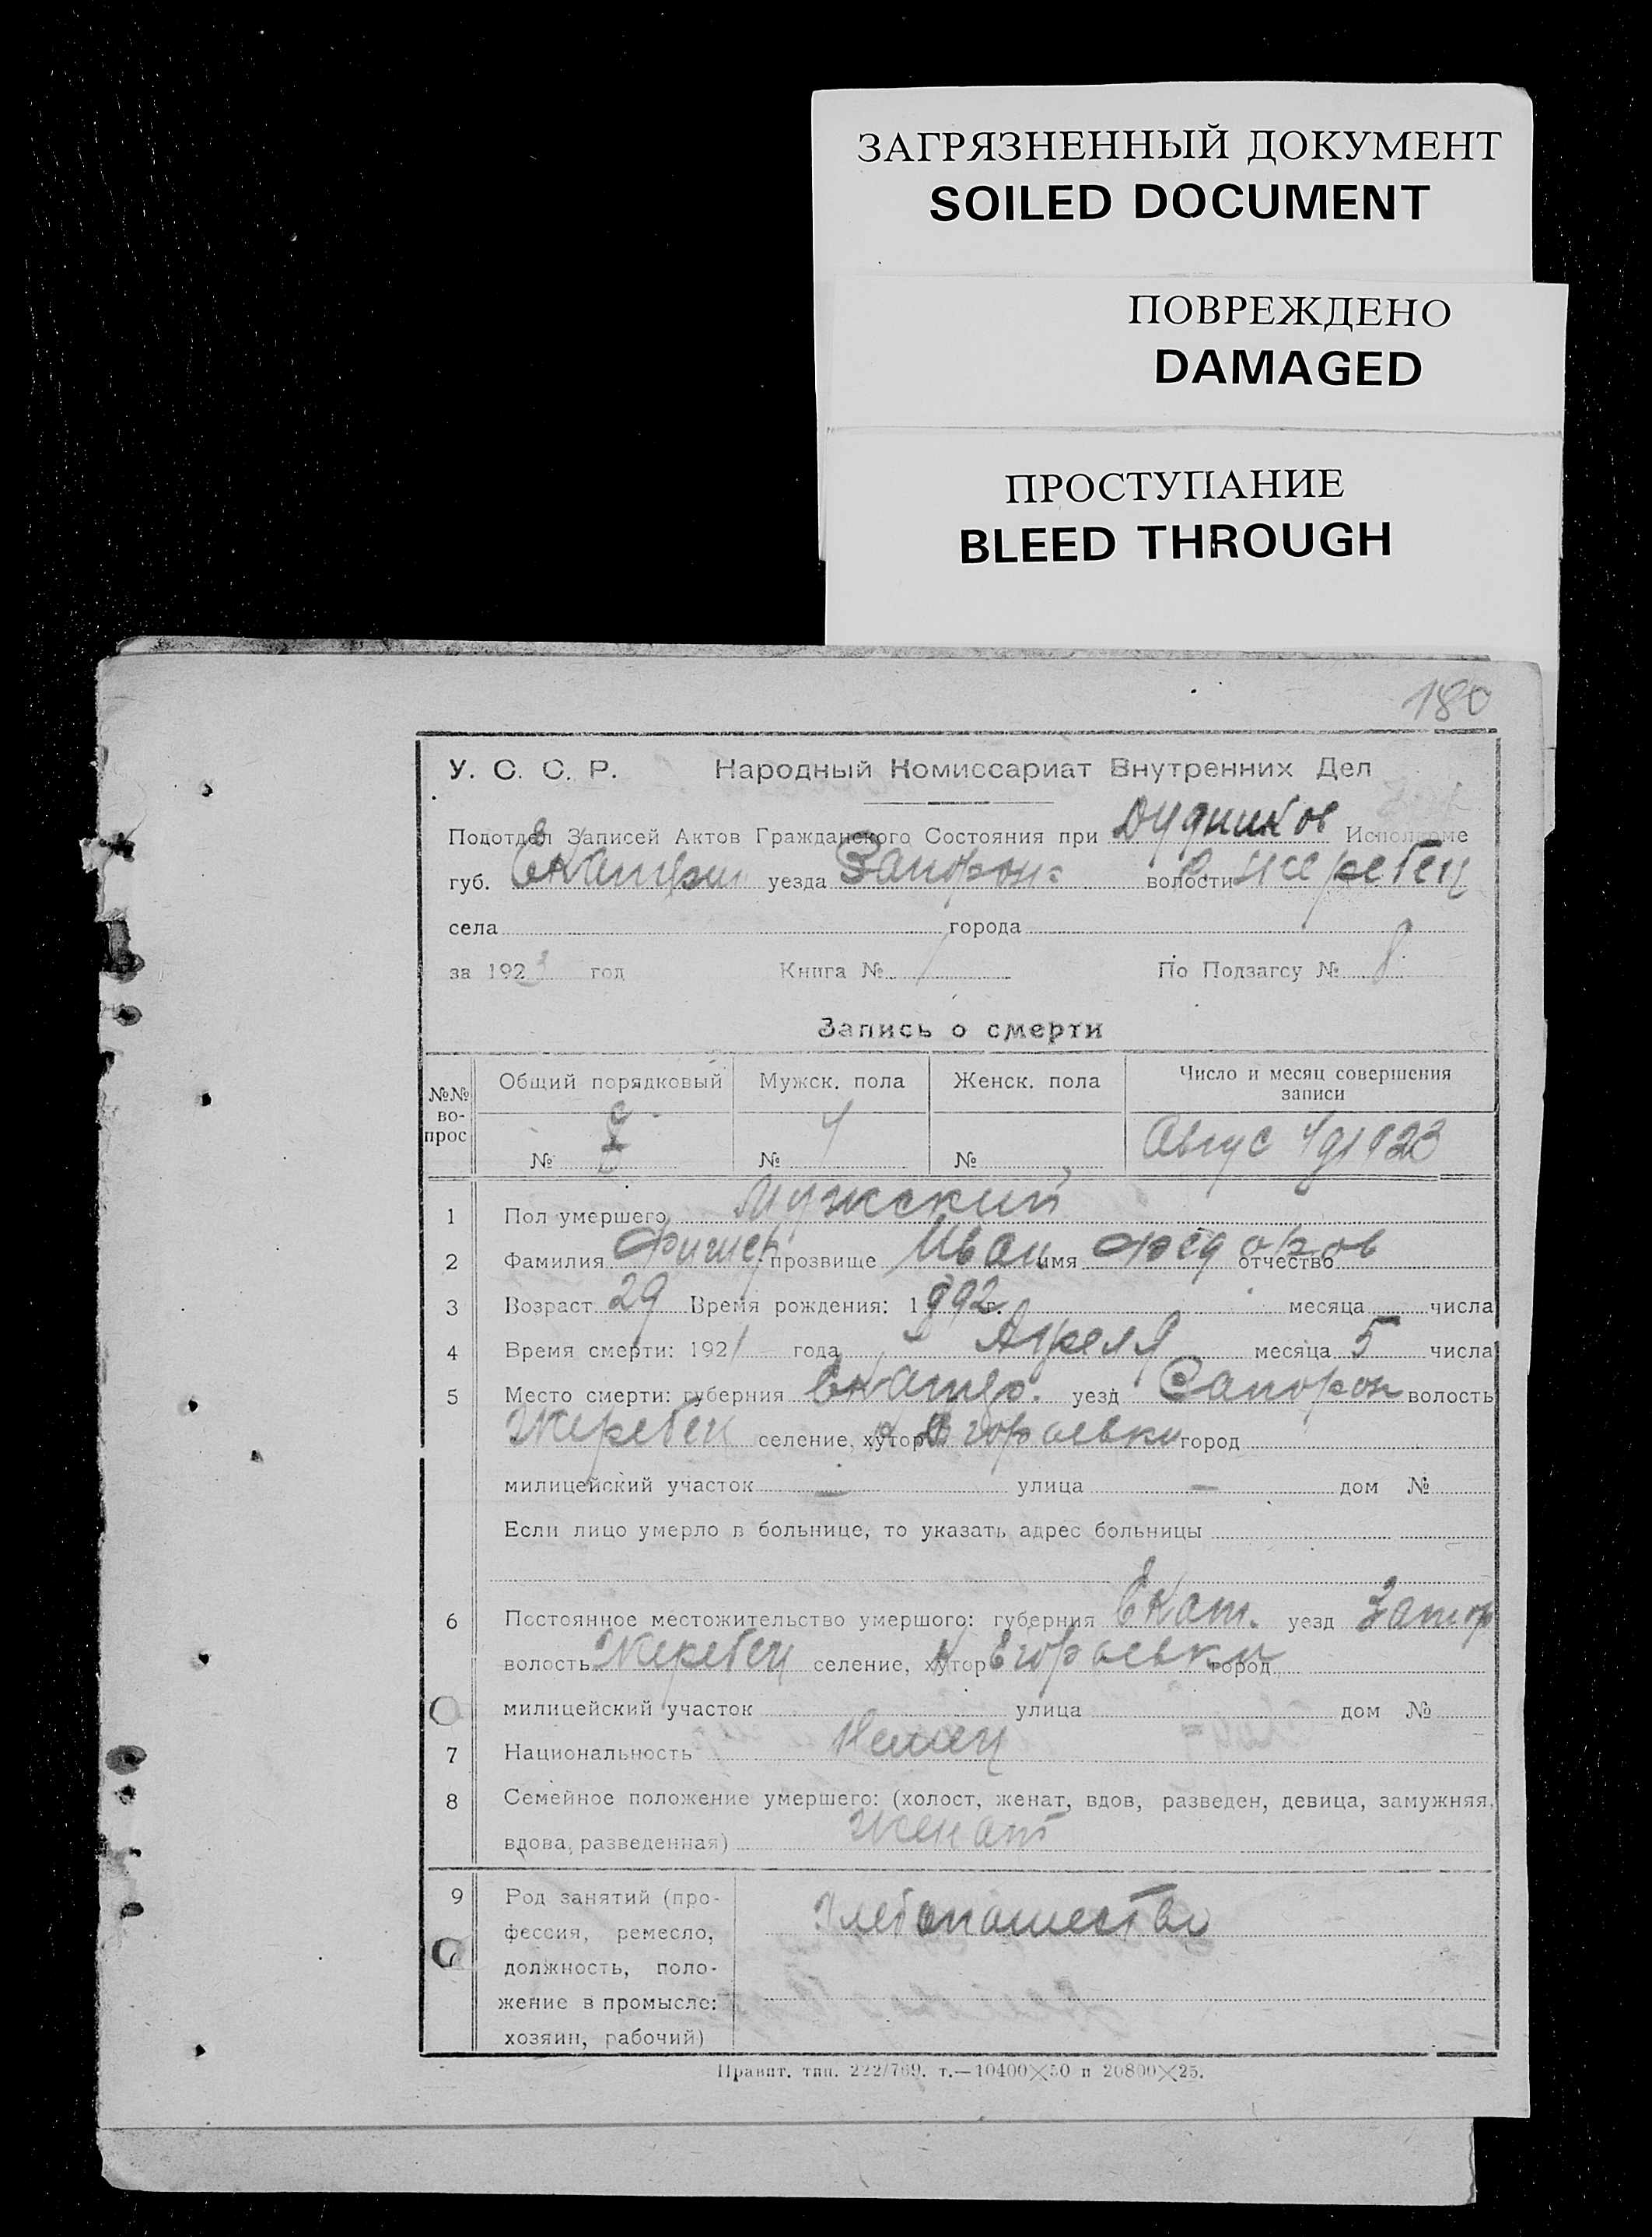 ЗАГРЯЗНЕННЫЙ ДОКУМЕНТ
SOILED DOCUMENT
ПОВРЕЖДЕНО
DAMAGED
ПРОСТУПАНИЕ
BLEED THROUGH
180
У. С. С. Р. Народный Комиссариат Внутренних Дел
Подотдел Записей Актов Гражданского Состояния при Дудников Исполкоме
губ. Екатерин уезда Запорож волости Жеребец
села города
за 1923 год Книга № 1 По Подзагсу № 8
Запись о смерти
№№ вопрос Общий порядковый Мужск. пола Женск. пола Число и месяц совершения записи
№ № 4 № Август 4д 1923
1 Пол умершего Мужский
2 Фамилия Фишер прозвище Иван имя Федоров отчество
3 Возраст 29 Время рождения: 1892 г. месяца числа
4 Время смерти: 1921 года Апреля месяца 5 числа
5 Место смерти: губерния Екатер. уезд Запорож волость
Жеребец селение, хутор Егораевки город
милицейский участок — улица — дом №
Если лицо умерло в больнице, то указать адрес больницы
6 Постоянное местожительство умершого: губерния Екат. уезд Запор
волость Жеребец селение, хутор Егораевки город
милицейский участок улица дом №
7 Национальность Немец
8 Семейное положение умершего: (холост, женат, вдов, разведен, девица, замужняя,
вдова, разведенная) Женат
9 Род занятий (про-
фессия, ремесло,
должность, поло-
жение в промысле:
хозяин, рабочий)
Хлебопашество
Правпт. тип. 222/769. т.—10400×50 и 20800×25.